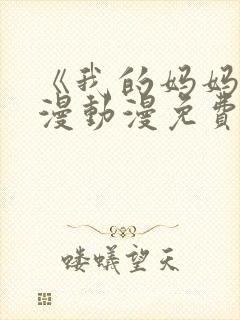 《我的妈妈
漫動漫免費
喽蟻望天